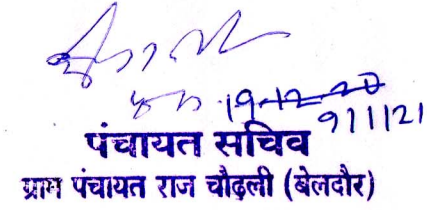 19-12-20
9/1/21
पंचायत सचिव
ग्राम पंचायत राज चौढ़ली (बेलदौर)